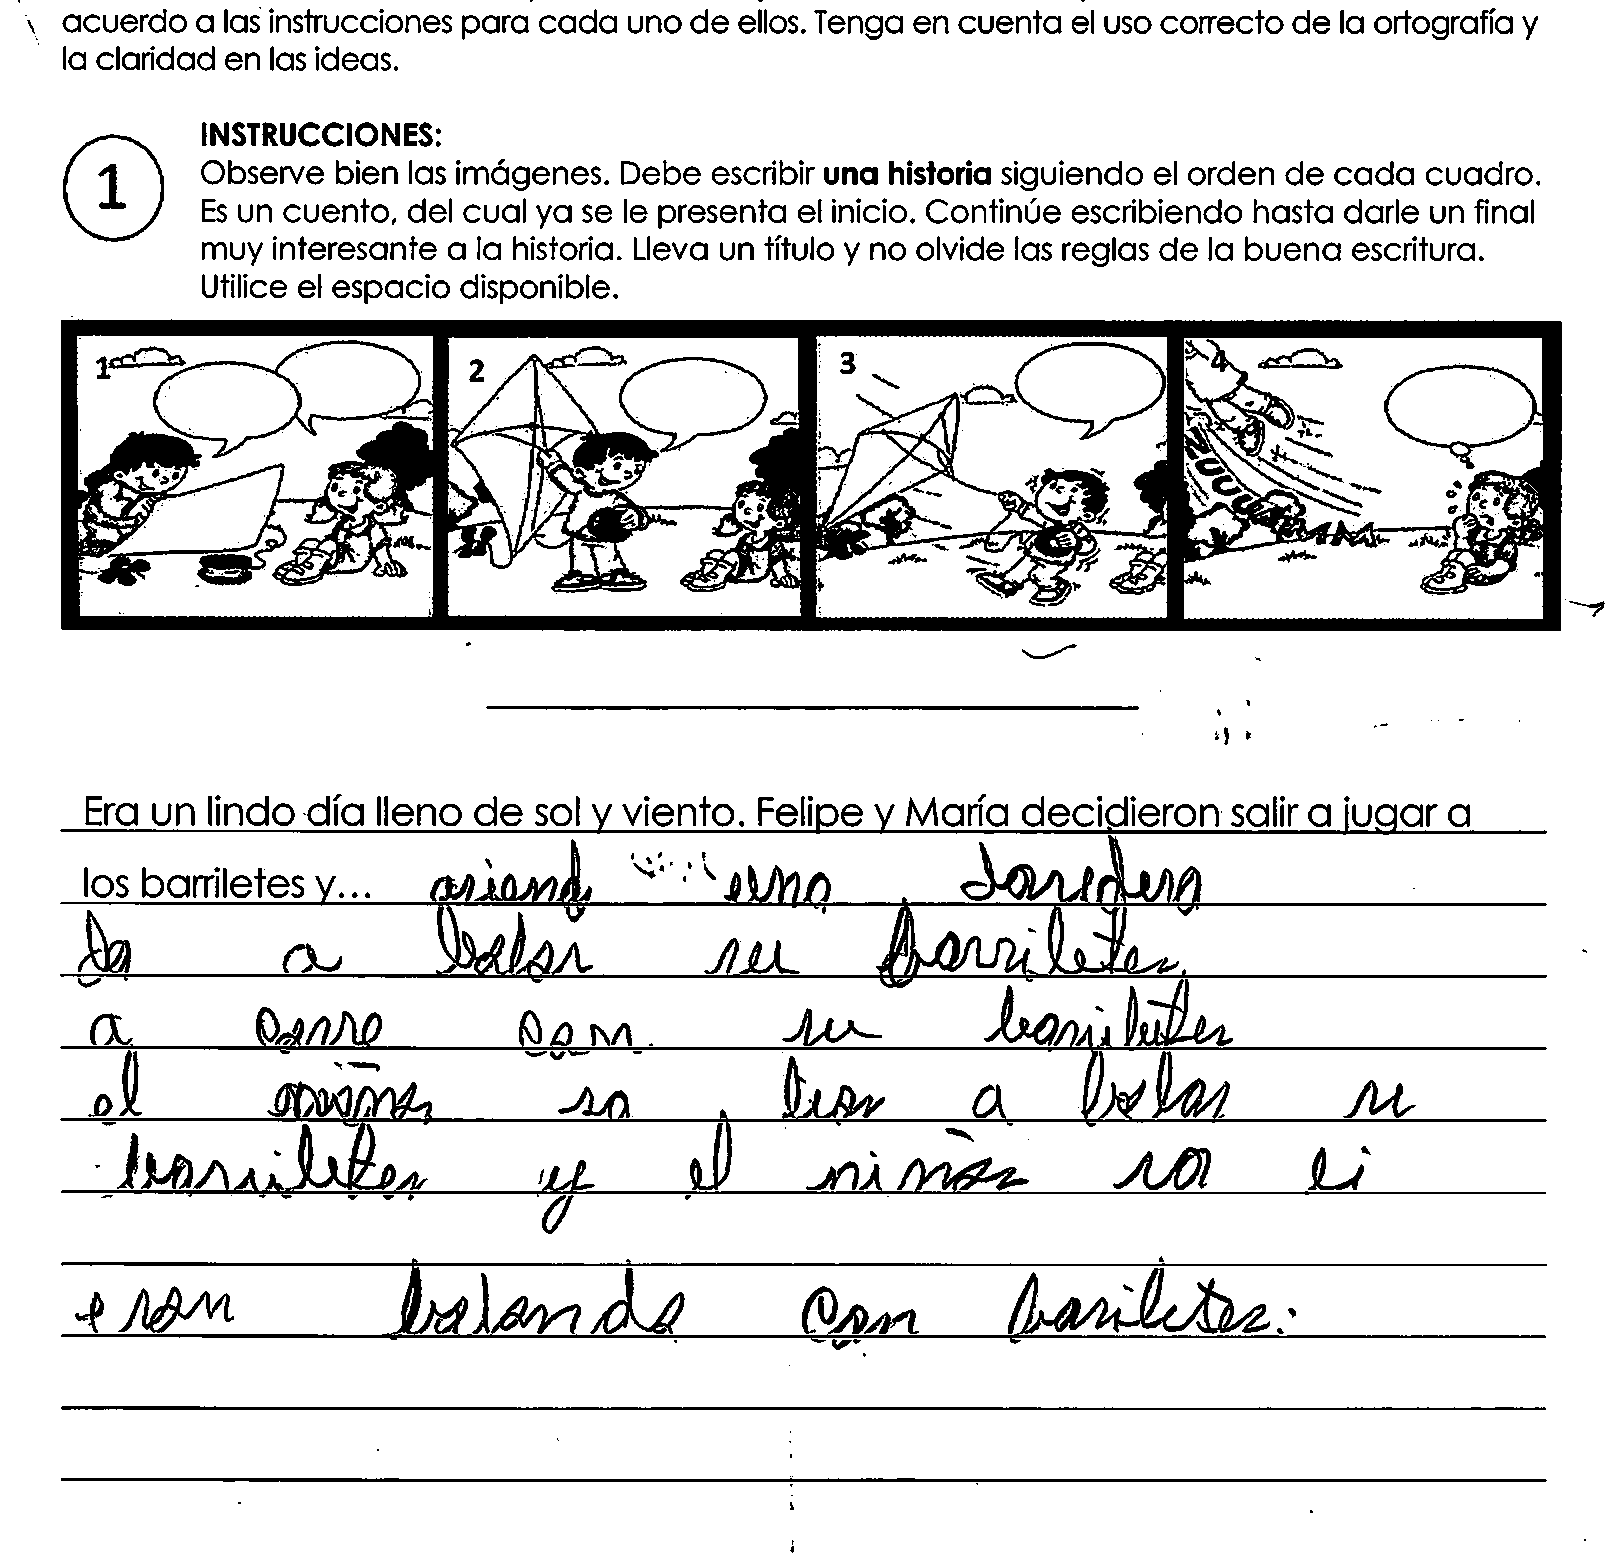 acuerdo a las instrucciones para cada uno de ellos. Tenga en cuenta el uso correcto de la ortografía y
la claridad en las ideas.
1
INSTRUCCIONES:
Observe bien las imágenes. Debe escribir una historia siguiendo el orden de cada cuadro.
Es un cuento, del cual ya se le presenta el inicio. Continúe escribiendo hasta darle un final
muy interesante a la historia. Lleva un título y no olvide las reglas de la buena escritura.
Utilice el espacio disponible.
1 2 3 4
ZUUU
Era un lindo día lleno de sol y viento. Felipe y María decidieron salir a jugar a
los barriletes y... asiend
a bolar su barriletes
a con su bariletes
el so a bolar su
bariletes y el niños
eron bolando con bariletes.